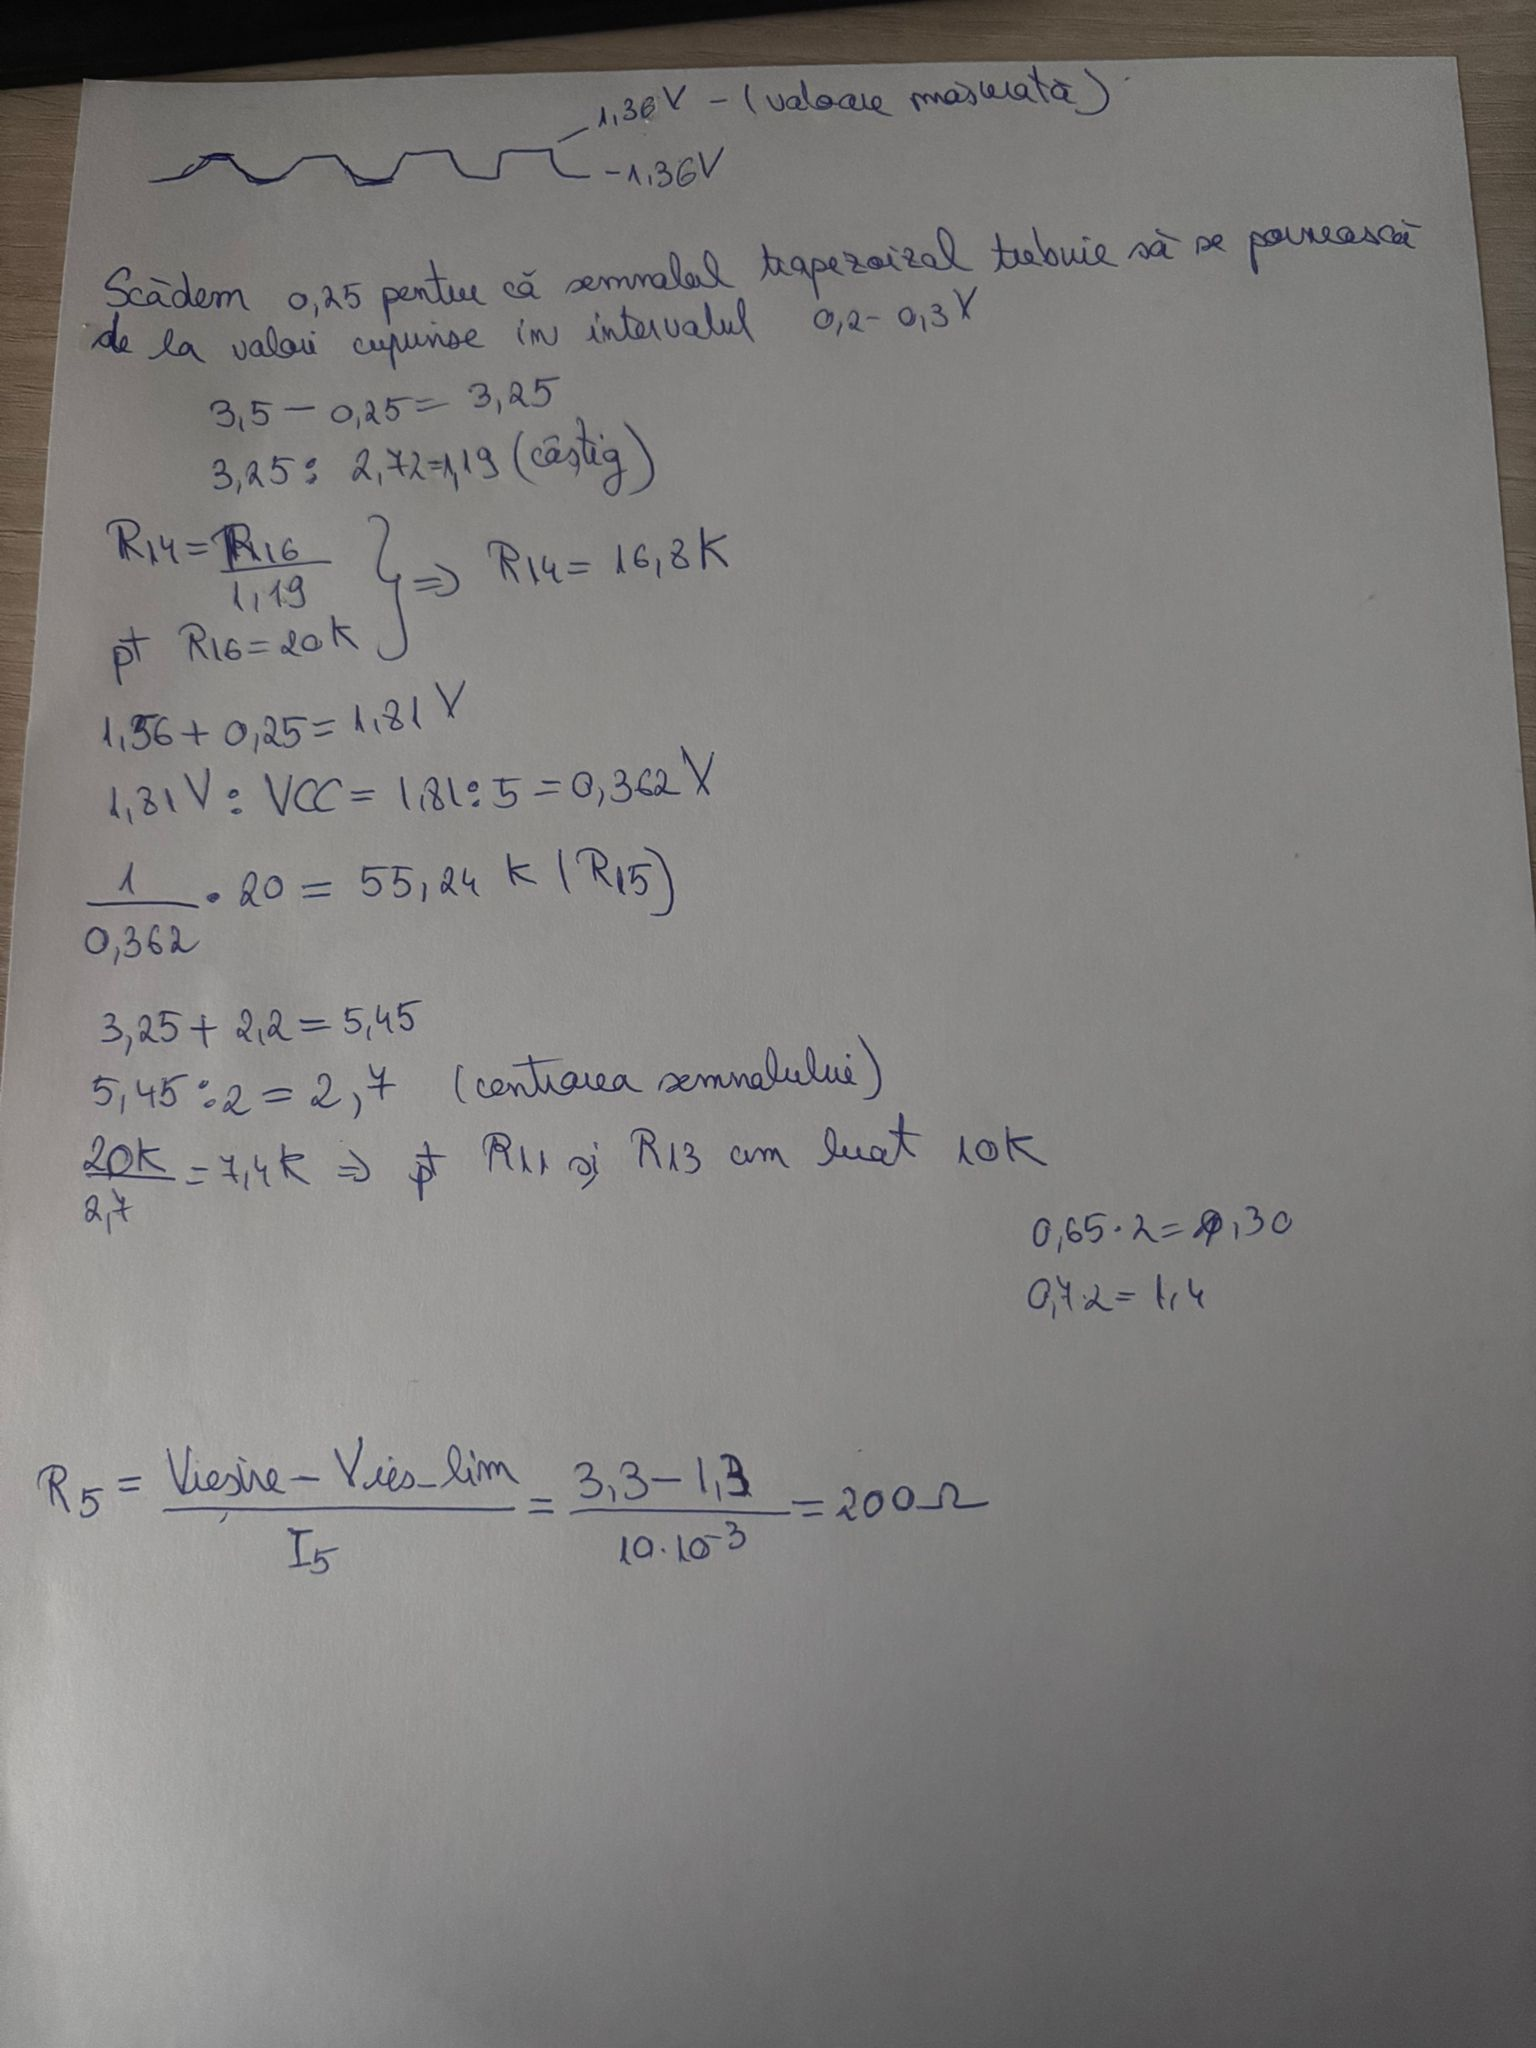 1,36V - (valoare măsurată)
-1,36V
Scădem 0,25 pentru că semnalul trapezoizal trebuie să se pornească
de la valori cuprinse în intervalul 0,2-0,3V
3,5 - 0,25 = 3,25
3,25 : 2,72 = 1,19 (câștig)
R14 = R16 / 1,19 } => R14 = 16,8K
pt R16 = 20K
1,56 + 0,25 = 1,81V
1,81V : VCC = 1,81 : 5 = 0,362V
1 / 0,362 · 20 = 55,24 K (R15)
3,25 + 2,2 = 5,45
5,45 : 2 = 2,7 (centrarea semnalului)
20K / 2,7 = 7,4K => pt R11 și R13 am luat 10K
0,65 · 2 = 1,30
0,7 · 2 = 1,4
R5 = Vieșire - Vieș_lim / I5 = 3,3 - 1,3 / 10·10⁻³ = 200Ω